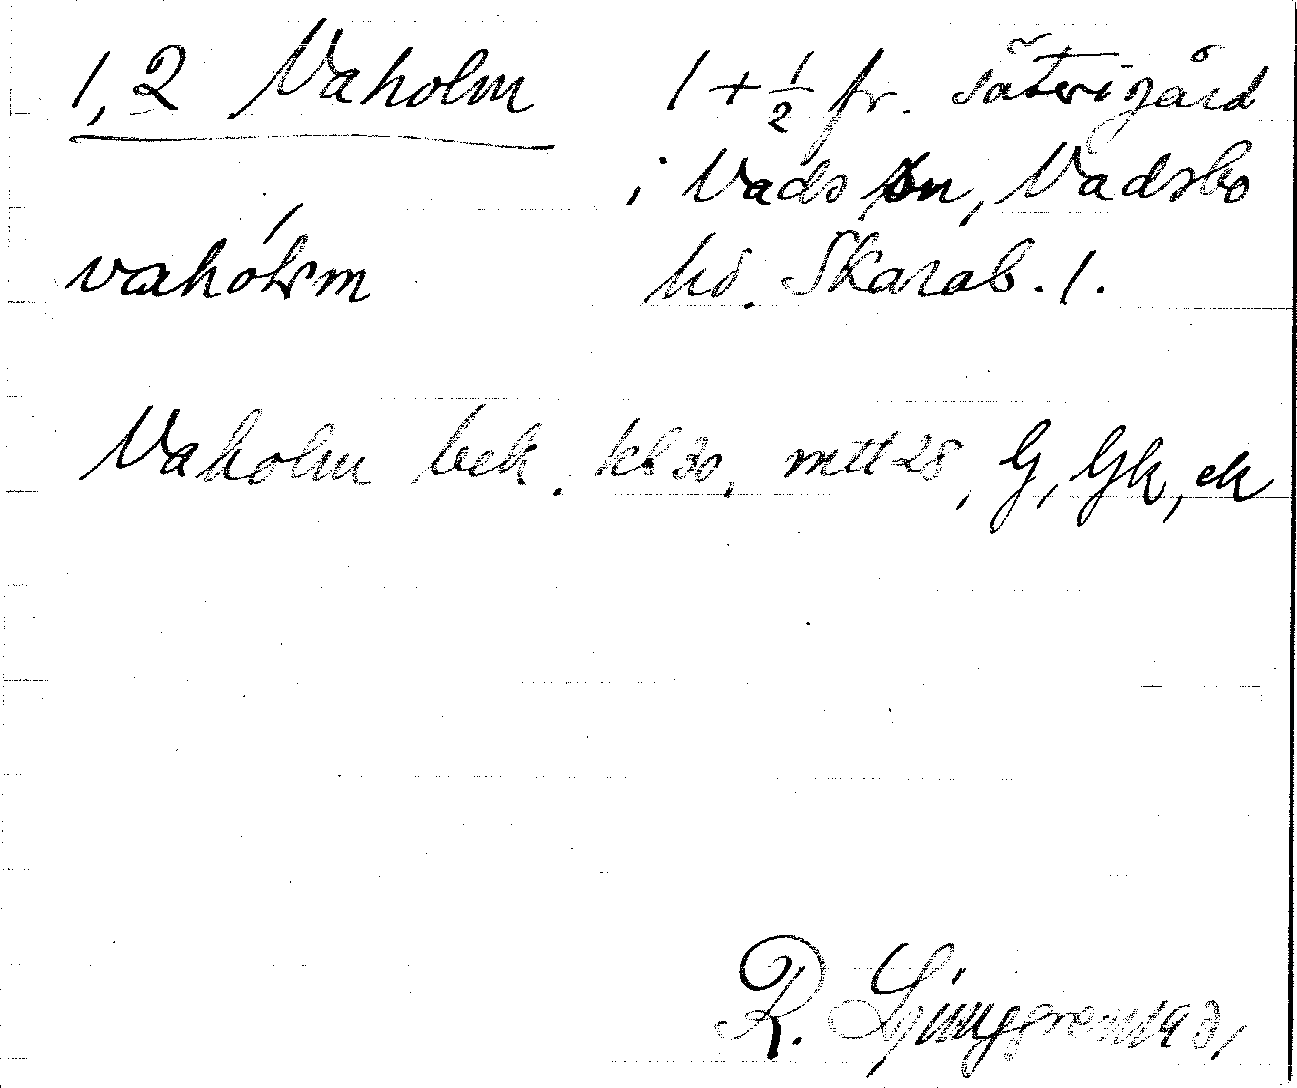 1,2 Vaholm
1 + 1/2 fr. säterigård
i Vads sn, Vadsbo
hd. Skarab. l.
vahólm
Vaholm bek. kl 30, mtl 28, G, Gk, ek
R. Ljunggren 1931